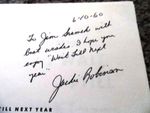 6-10-60
To Jim
with
best wishes. I hope you
enjoy "Wait Till Next
year"
Jackie Robinson
TILL NEXT YEAR